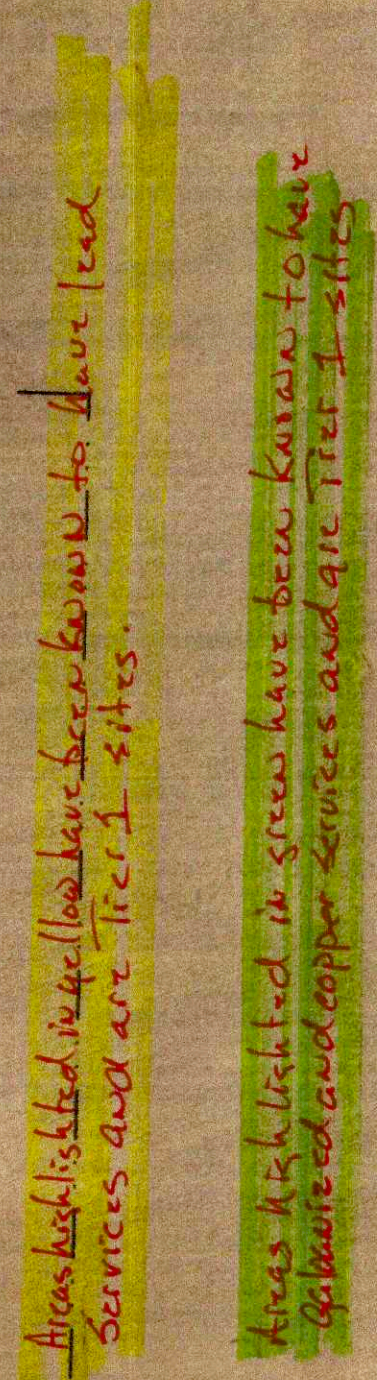 Areas highlighted in yellow have been known to have lead
Services and are Tier 1 sites.
Areas highlighted in green have been known to have
Galvanized and copper services and are Tier 1 sites